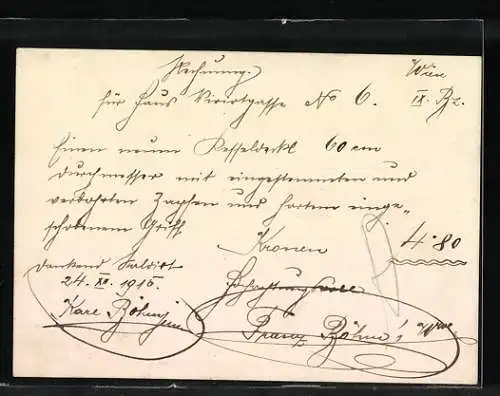 Rechnung.
Wien
für Haus Viriotgasse No 6. IX. Bz.
Einen neuen Kesseldeckl 60 cm
Durchmesser mit eingestemmten und
verbohrten Zapfen und hartem einge=
schobenem Griff
Kronen 4·80
dankend Saldirt
24. XII. 1915. Hochachtungsvoll
Karl Böhm jun. Franz Böhm's Wwe